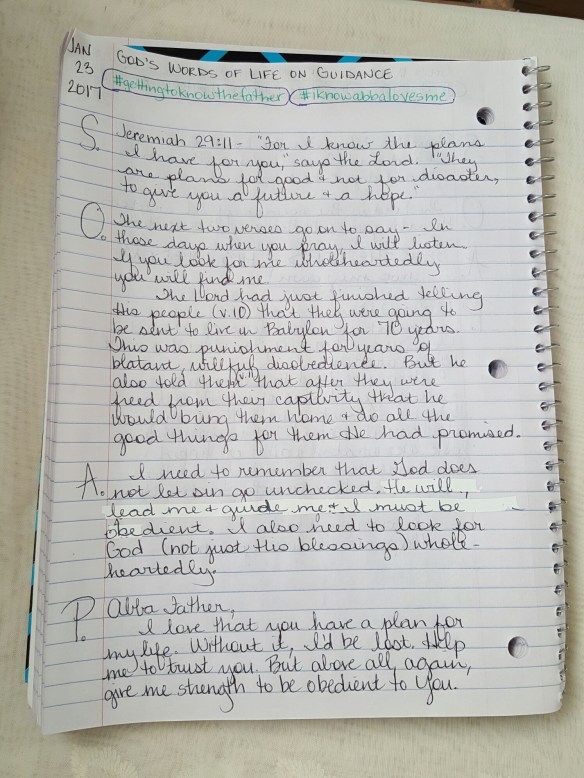 JAN
23
2017
GOD'S WORDS OF LIFE ON GUIDANCE
#gettingtoknowthefather #iknowabbalovesme
S. Jeremiah 29:11- "For I know the plans
I have for you," says the Lord. "They
are plans for good & not for disaster,
to give you a future & a hope."
O. The next two verses go on to say - In
those days when you pray, I will listen
If you look for me wholeheartedly
you will find me.
The Lord had just finished telling
His people (v.10) that they were going to
be sent to live in Babylon for 70 years.
This was punishment for years of
blatant, willful disobedience. But he
also told them that after they were
freed from their captivity that he
would bring them home & do all the
good things for them He had promised.
A. I need to remember that God does
not let sin go unchecked. He will
lead me & guide me & I must be
obedient. I also need to look for
God (not just His blessings) whole-
heartedly.
P. Abba Father,
I love that you have a plan for
my life. Without it, I'd be lost. Help
me to trust you. But above all, again,
give me strength to be obedient to You.